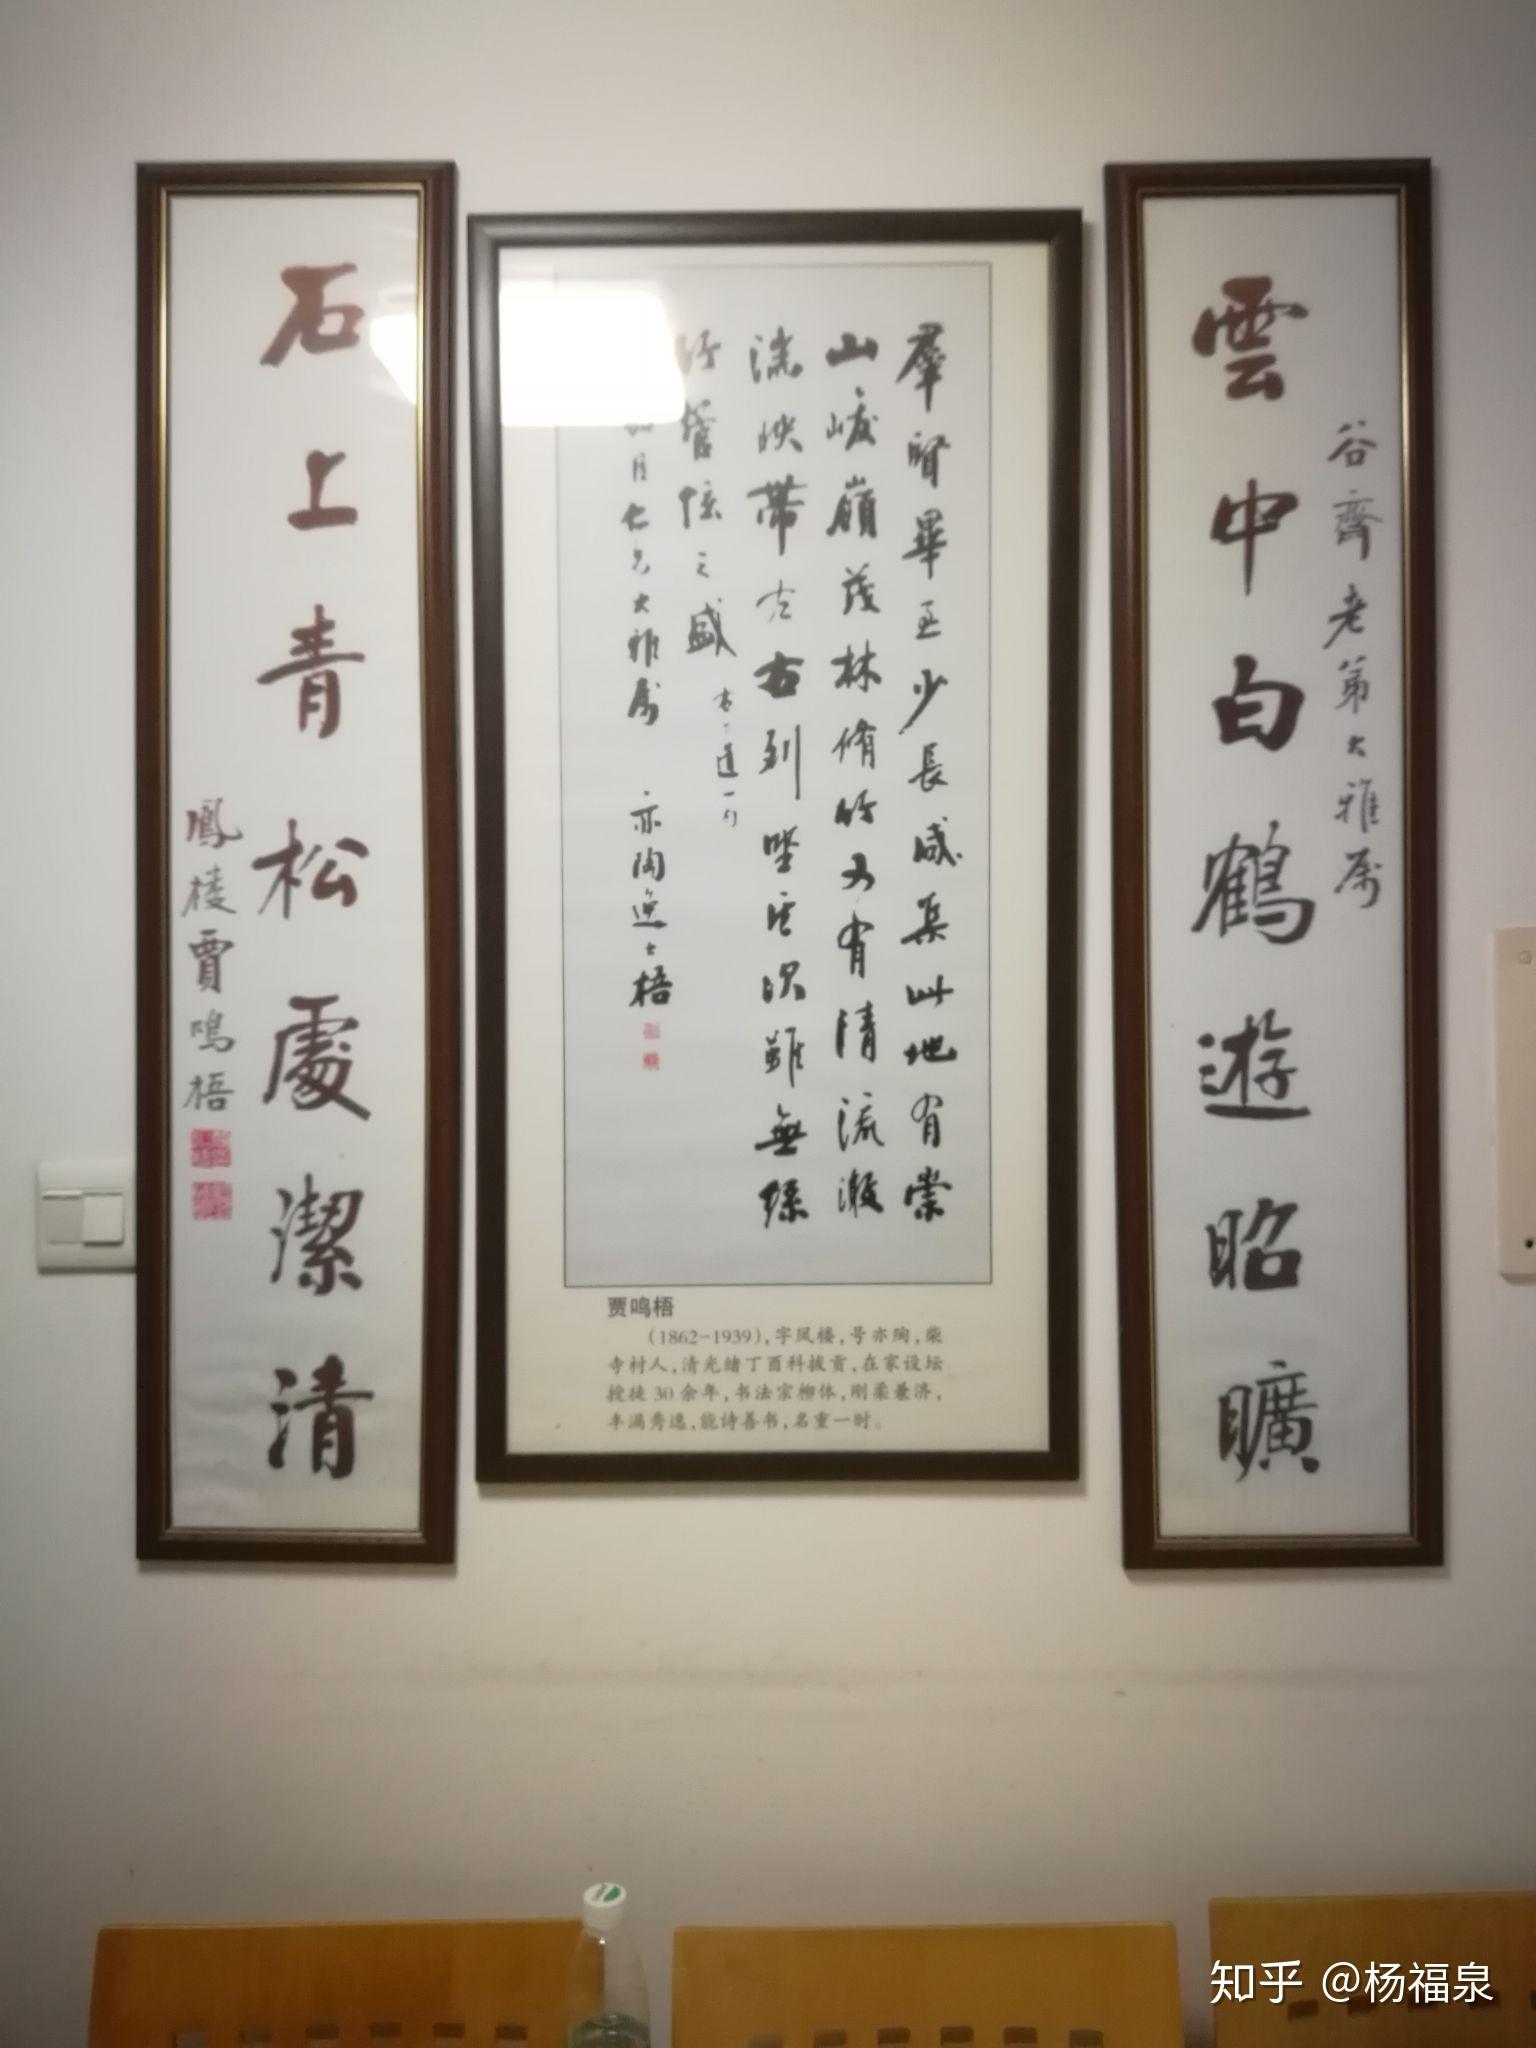 谷齊老弟大雅屬
雲中白鶴遊昭曠
羣賢畢至少長咸集此地有崇
山峻嶺茂林脩竹又有清流激
湍映帶左右列坐其次雖無絲
竹管弦之盛
月
大雅屬
亦陶逸士梧
贾鸣梧
(1862-1939),字凤楼,号亦陶,柴
寺村人,清光绪丁酉科拔贡,在家设坛
授徒30余年,书法宗柳体,刚柔兼济,
丰满秀逸,能诗善书,名重一时。
石上青松處潔清
鳳棲賈鳴梧
知乎 @杨福泉